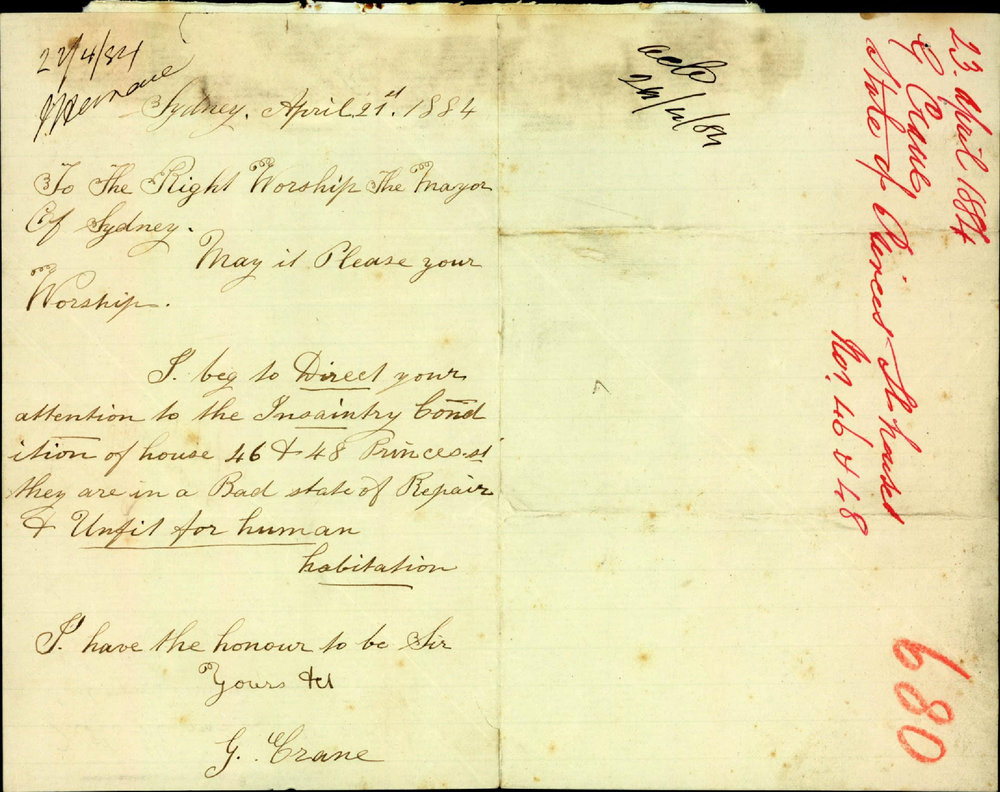 22/4/84
Sydney. April 21st. 1884
To The Right Worship The Mayor
Of Sydney.
May it Please your
Worship.
I. beg to Direct your
attention to the Insaintry Cond
ition of house 46 & 48 Princes. st
they are in a Bad state of Repair
& Unfit for human
habitation
I. have the honour to be Sir
Yours &c
G. Crane
23. april 1884
G Crane
State of Princes St houses
Nos. 46 & 48
680